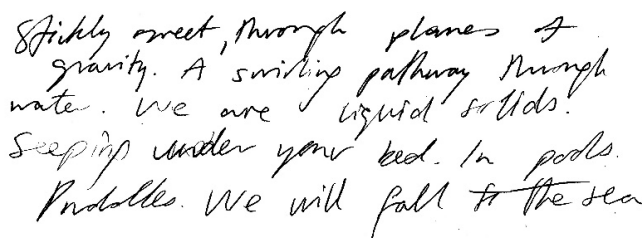 Stickly sweet, through planes of
gravity. A swirling pathway through
water. We are liquid solids.
Seeping under your bed. In pools.
Puddles. We will fall to the sea